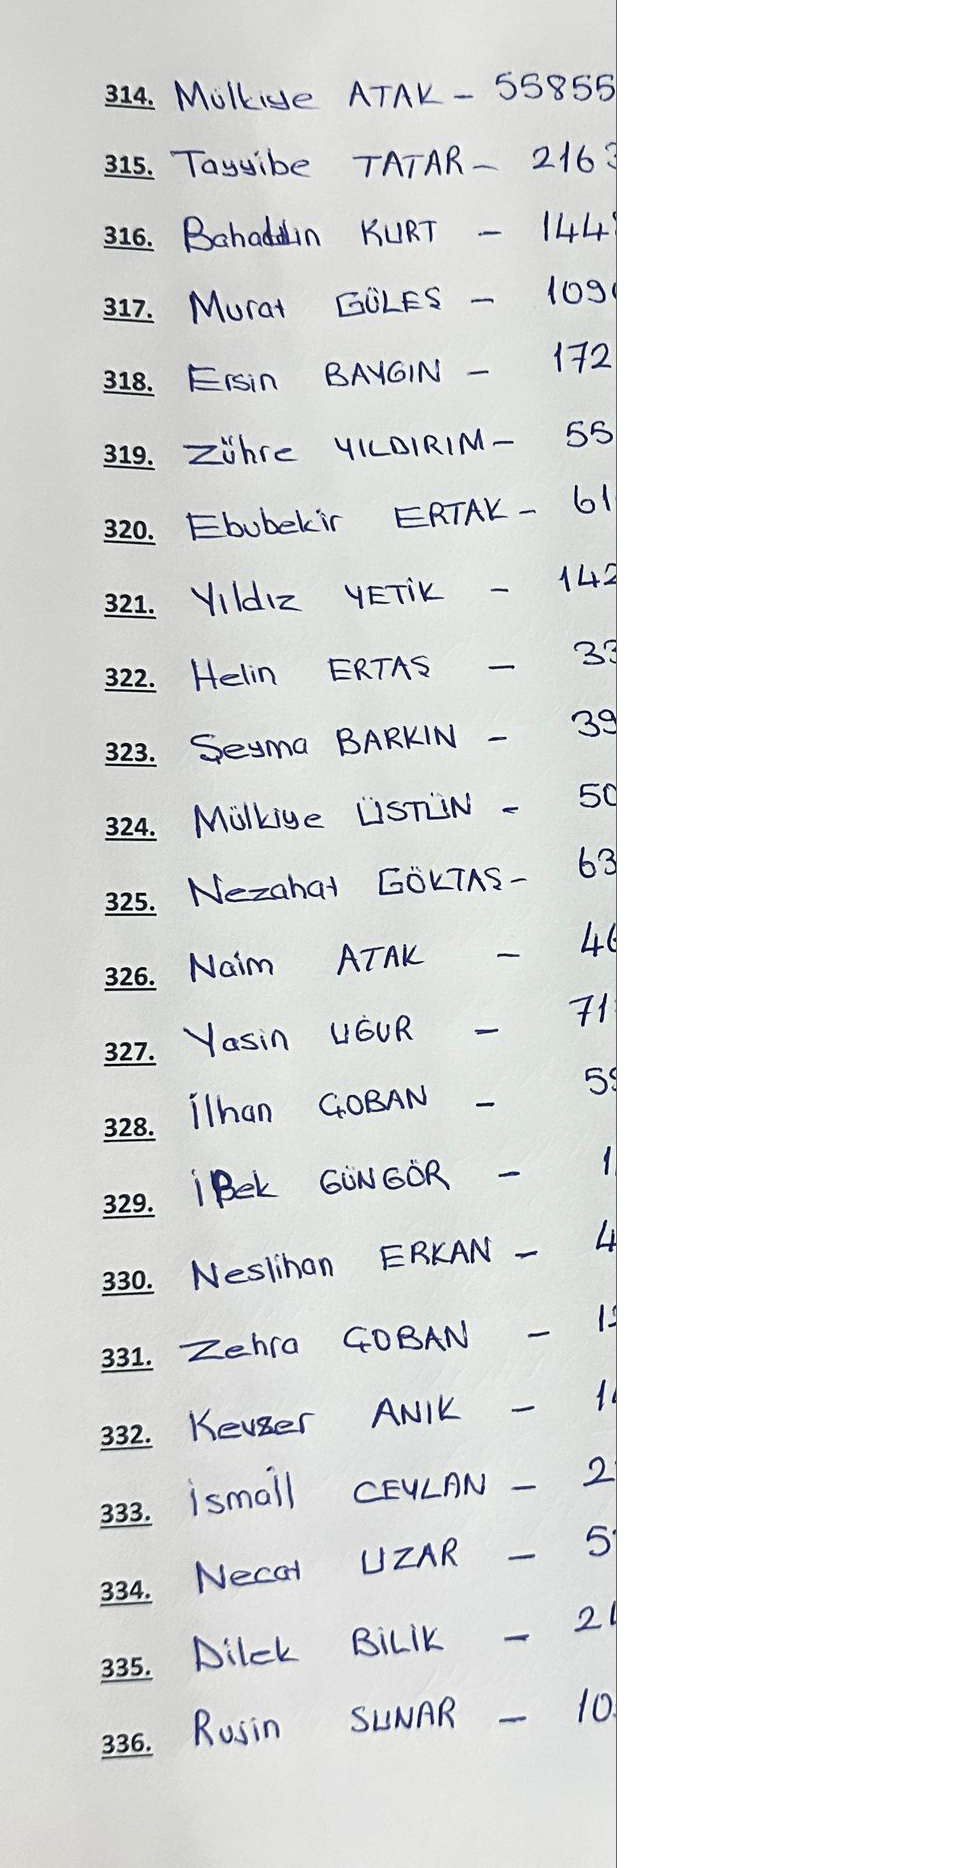 314. Mülkiye ATAK - 55855
315. Tayyibe TATAR - 2163
316. Bahaddin KURT - 144
317. Murat GÜLEŞ - 109
318. Ersin BAYGIN - 172
319. Zühre YILDIRIM - 55
320. Ebubekir ERTAK - 61
321. Yıldız YETİK - 142
322. Helin ERTAŞ - 33
323. Şeyma BARKIN - 39
324. Mülkiye ÜSTÜN - 50
325. Nezahat GÖKTAŞ - 63
326. Naim ATAK - 46
327. Yasin UĞUR - 71
328. İlhan ÇOBAN - 59
329. İpek GÜNGÖR - 1
330. Neslihan ERKAN - 4
331. Zehra ÇOBAN - 1
332. Kevser ANIK - 1
333. İsmail CEYLAN - 2
334. Necat UZAR - 5
335. Dilek BİLİK - 21
336. Rusin SUNAR - 10